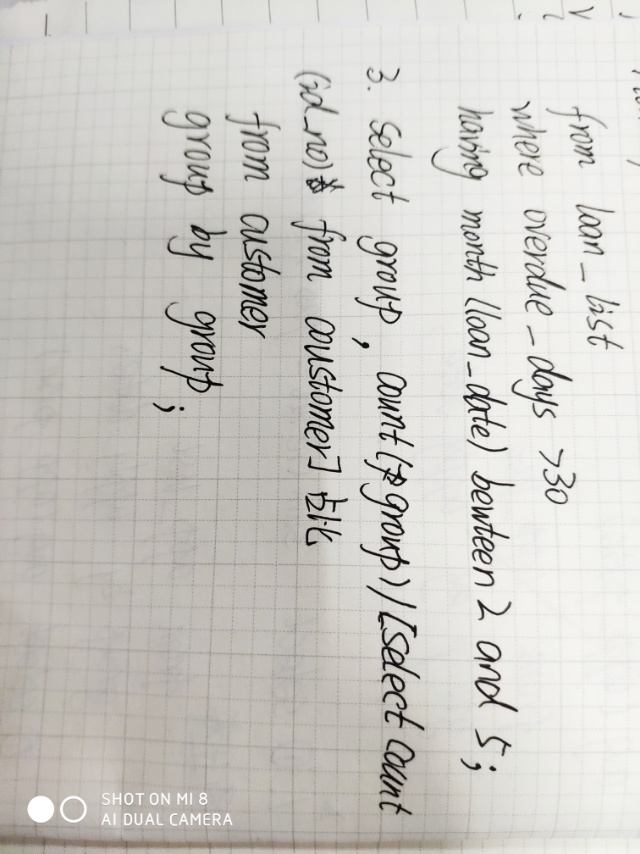 from loan_list
where overdue_days >30
having month (loan_date) bewteen 2 and 5;
3. select group, count(group) / [select count
(id_no) from customer] 占比
from customer
group by group;
SHOT ON MI 8
AI DUAL CAMERA